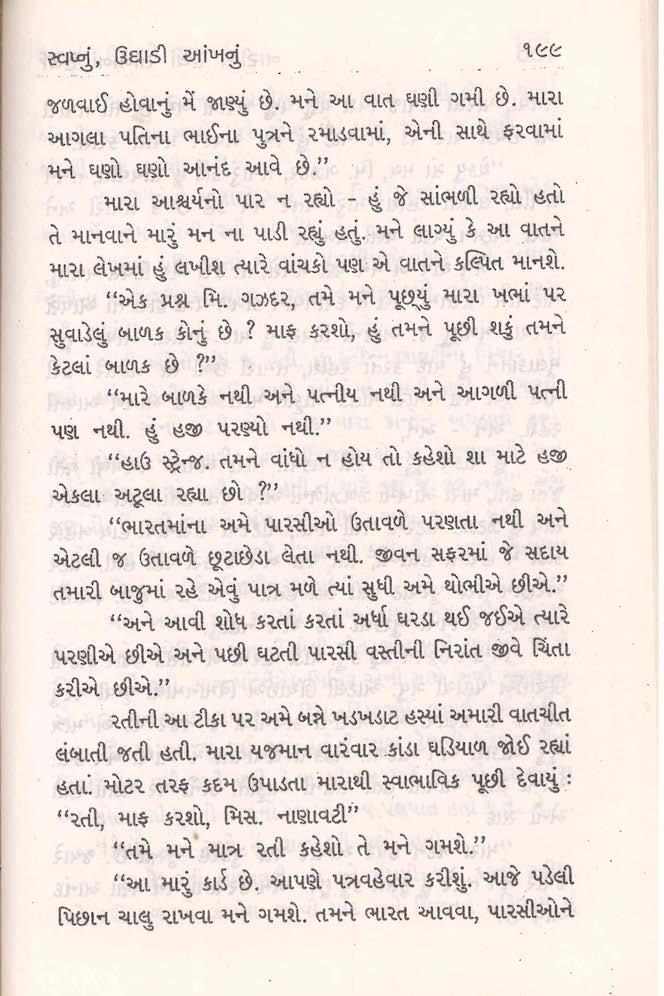 સ્વપ્નું, ઉઘાડી આંખનું ૧૯૯
જળવાઈ હોવાનું મેં જાણ્યું છે. મને આ વાત ઘણી ગમી છે. મારા
આગલા પતિના ભાઈના પુત્રને રમાડવામાં, એની સાથે ફરવામાં
મને ઘણો ઘણો આનંદ આવે છે.”
મારા આશ્ચર્યનો પાર ન રહ્યો - હું જે સાંભળી રહ્યો હતો
તે માનવાને મારું મન ના પાડી રહ્યું હતું. મને લાગ્યું કે આ વાતને
મારા લેખમાં હું લખીશ ત્યારે વાંચકો પણ એ વાતને કલ્પિત માનશે.
“એક પ્રશ્ન મિ. ગઝદર, તમે મને પૂછ્યું મારા ખભાં પર
સુવાડેલું બાળક કોનું છે ? માફ કરશો, હું તમને પૂછી શકું તમને
કેટલાં બાળક છે ?”
“મારે બાળકે નથી અને પત્નીય નથી અને આગળી પત્ની
પણ નથી. હું હજી પરણ્યો નથી.”
“હાઉ સ્ટ્રેન્જ. તમને વાંધો ન હોય તો કહેશો શા માટે હજી
એકલા અટૂલા રહ્યા છો ?”
“ભારતમાંના અમે પારસીઓ ઉતાવળે પરણતા નથી અને
એટલી જ ઉતાવળે છૂટાછેડા લેતા નથી. જીવન સફરમાં જે સદાય
તમારી બાજુમાં રહે એવું પાત્ર મળે ત્યાં સુધી અમે થોભીએ છીએ.”
“અને આવી શોધ કરતાં કરતાં અર્ધા ઘરડા થઈ જઈએ ત્યારે
પરણીએ છીએ અને પછી ઘટતી પારસી વસ્તીની નિરાંત જીવે ચિંતા
કરીએ છીએ.”
રતીની આ ટીકા પર અમે બન્ને ખડખડાટ હસ્યાં અમારી વાતચીત
લંબાતી જતી હતી. મારા યજમાન વારંવાર કાંડા ઘડિયાળ જોઈ રહ્યાં
હતાં. મોટર તરફ કદમ ઉપાડતા મારાથી સ્વાભાવિક પૂછી દેવાયું :
“રતી, માફ કરશો, મિસ. નાણાવટી”
“તમે મને માત્ર રતી કહેશો તે મને ગમશે.”
“આ મારું કાર્ડ છે. આપણે પત્રવહેવાર કરીશું. આજે પડેલી
પિછાન ચાલુ રાખવા મને ગમશે. તમને ભારત આવવા, પારસીઓને